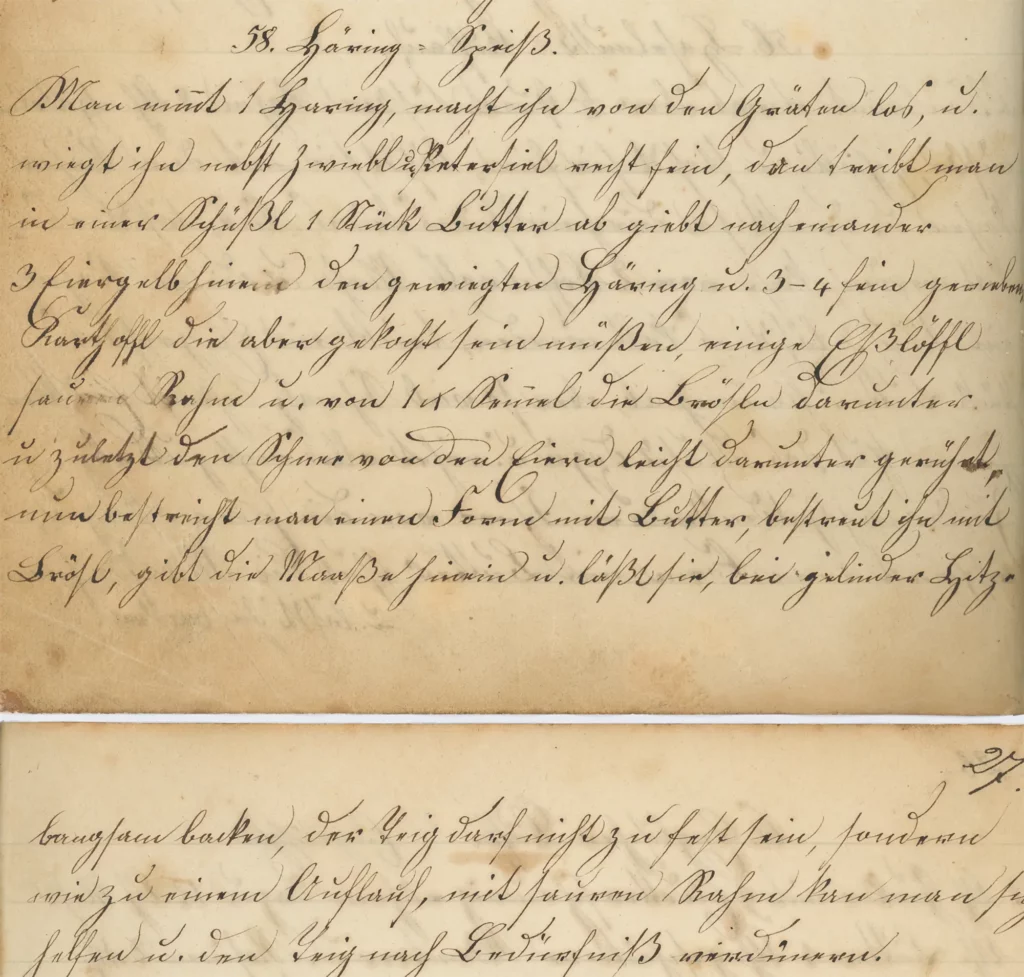 58. Häring-Speiß.
Man nim̅t 1 Haring, macht ihn von den Gräten los, u.
wiegt ihn nebst Zwiebl u. Petersiel recht fein, dan treibt man
in einer Schüßl 1 Stück Butter ab giebt nacheinander
3 Eiergelb hinein den gewiegten Häring u. 3-4 fein gerieben
Karthoffl die aber gekocht sein müßen, einige Eßlöffl
sauren Rahm u. von 1 Sem̅el die Brösln darunter
u zuletzt den Schnee von den Eiern leicht darunter gerührt,
nun bestreicht man einen Form mit Butter, bestreut ihn mit
Brösl, gibt die Maaße hinein u. läßt sie, bei gelinder Hitze
27.
langsam backen, der Teig darf nicht zu fest sein, sondern
wie zu einem Auflauf, mit sauren Rahm kan man
helfen u. den Teig nach Bedürfniß verdünern.